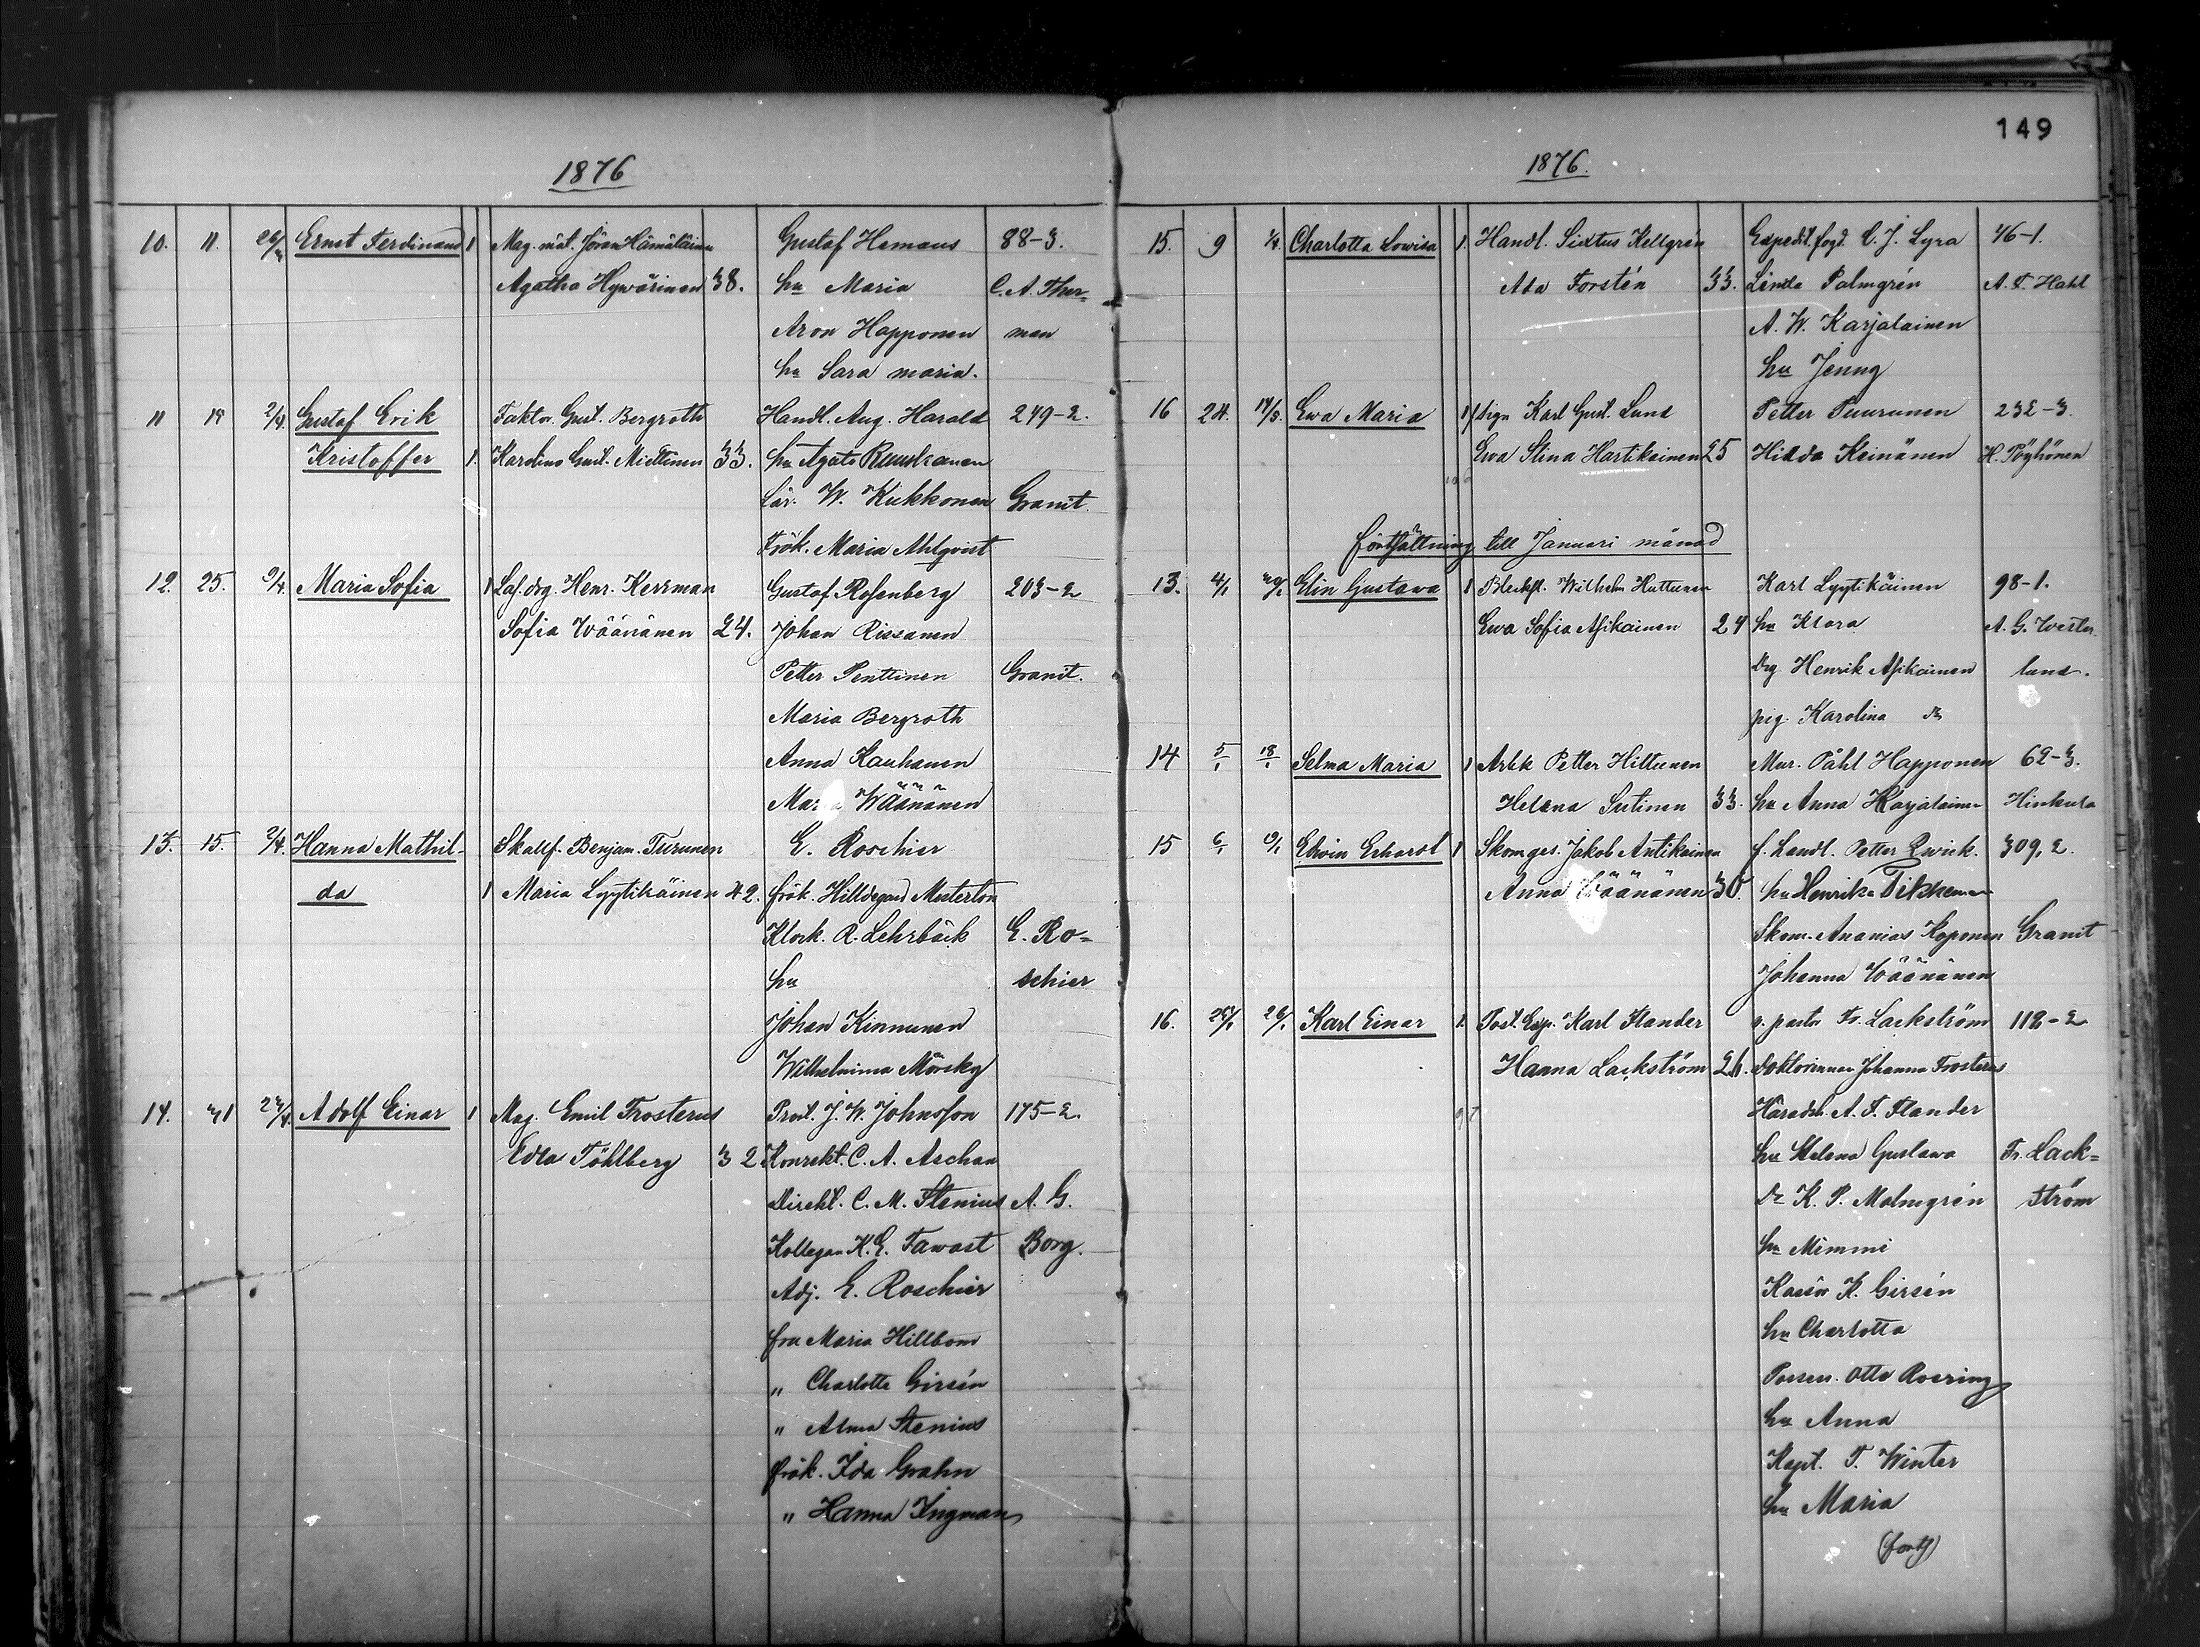 149
1876
10. 11. 26/3 Ernst Ferdinand 1 Mag. Jöran Hämäläinen Gustaf Hemans 88-3.
Agatha Hyvärinen 38. hu Maria C. A. Ther-
Aron Happonen man
hu Sara Maria.
11 19 2/4. Gustaf Erik Faktor. Gust. Bergroth Handl. Aug. Harald 249-2.
Kristoffer 1. Karolina Gust. Miettinen 33. hu Agata Ruuskanen
Lär. W. Kukkonen Granit.
Frök. Maria Ahlqvist
12. 25. 9/4. Maria Sofia 1 Henr. Kerrman Gustaf Rosenberg 203-2
Sofia Wäänänen 24. Johan Rissanen
Petter Penttinen Granit.
Maria Bergroth
Anna Kauhanen
Maria Wäänänen
13. 15. 2/4. Hanna Mathil- Skallf. Benjam. Turunen E. Roschier
da 1 Maria Lyytikäinen 42. frök. Hilldegard Mesterton
Klock. R. Lehrbäck E. Ro-
hu schier
Johan Kinnunen
Wilhelmina Mörsky
14. 31 23/4. Adolf Einar 1 Mag. Emil Frosterus Prost. J. W. Johnsson 175-2.
EdlaFöhlberg 32 Konrekt. C. A. Aschan
Direkt. C. M. Stenius A. G.
Kollegan K. E. Fawast Borg.
Adj. E. Roschier
fru Maria Hillbom
„ Charlotte Girsén
„ Alma Stenius
frök. Ida Grahn
„ Hanna Ingman
1876.
15. 9 1/4. Charlotta Lowisa 1. Handl. Sixtus Kellgrén Expedit. fogd. C. J. Lyra 46-1.
Ada Forstén 33. Linda Palmgrén A. F. Hahl
A. W. Karjalainen
hu Jenny
16 24. 17/3. Ewa Maria 1 Karl Gust. Lund Petter Puurunen 232-3
Ewa Stina Hartikainen 25 Hilda Keinänen H. Pöyhönen
fortsättning till Januari månad
13. 4/1 29/1 Elin Gustava 1 Blecksl. Wilhelm Huttunen Karl Lyytikäinen 98-1.
Ewa Sofia Asikainen 24 hu Klara A. G. Wester-
Drg Henrik Asikainen lund.
pig. Karolina do
14 5/1 18/1 Selma Maria 1 Arbk Petter Hiltunen Mur. Påhl Happonen 62-3.
Helena Sutinen 33. hu Anna Karjalainen Hinkula
15 6/1 9/1 Edvin Erhard 1 Skomges. Jakob Antikainen f. Landl. Petter Qwick. 309, 2.
Anna Wäänänen 30. hu Henrika Tikkanen
Skom. Ananias Koponen Granit
Johanna Wäänänen
16. 25/1 26/1 Karl Einar 1. Post. Exp. Karl Flander v. pastor Fr. Lackström 118-2
Hanna Lackström 26. doktorinnan Johanna Frosterus
Häradsh. A. F. Flander
hu Helena Gustava Fr. Lack-
Dr K. P. Malmgrén ström
hu Mimmi
Kassör K. Girsén
hu Charlotta
Posses. Otto Roering
hu Anna
Kapt. F. Winter
hu Maria
(forts)